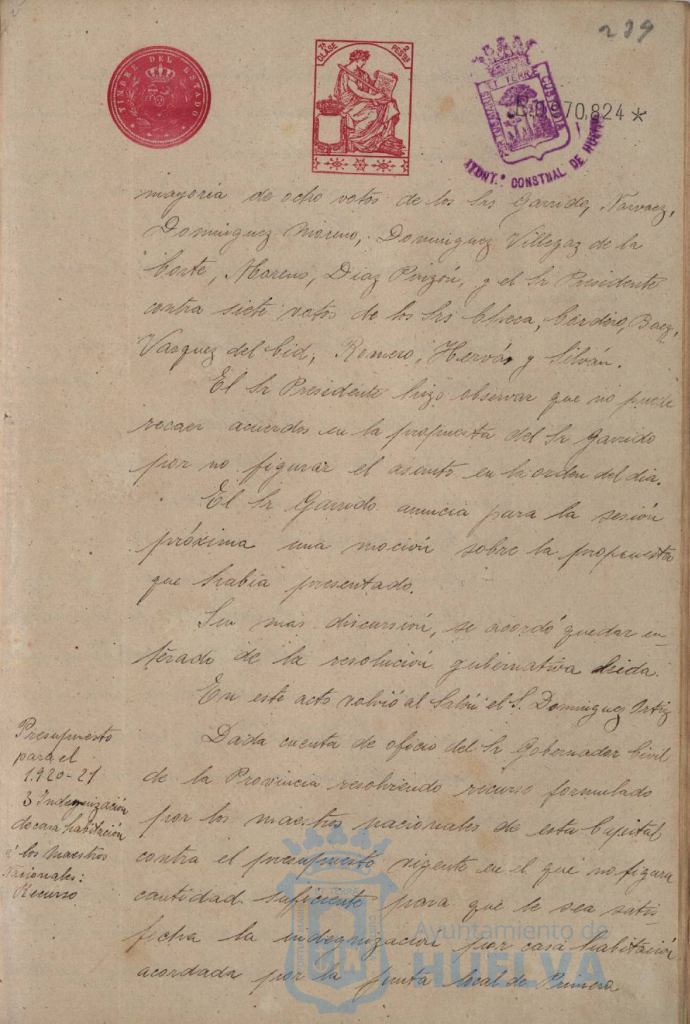 239
TIMBRE DEL ESTADO
7ª CLASE 2 PESETAS
B.0.070,824 *
AYUNT.º CONSTNAL DE HUELVA
mayoria de ocho votos de los Srs Garrido, Narvaez,
Dominguez Moreno, Dominguez Villegaz de la
Corte, Moreno, Diaz Pinzón, y el Sr Presidente
contra siete votos de los Srs Checa, Cordero, Baez,
Vazquez del Cid, Romero, Hervás y Silván.
El Sr Presidente hizo observar que no puede
recaer acuerdos en la propuesta del Sr Garrido
por no figurar el asunto en la orden del dia.
El Sr Garrido anuncia para la sesión
próxima una moción sobre la propuesta
que había presentado.
Sin mas discusión, se acordó quedar en-
terado de la resolución gubernativa leida.
En este acto volvió al Salón el S. Dominguez Ortiz
Dada cuenta de oficio del Sr Gobernador Civil
de la Provincia resolviendo recurso formulado
por los maestros nacionales de esta Capital
contra el presupuesto vigente en el que no figura
cantidad suficiente para que le sea satis-
fecha la indegnización por casa habitación
acordada por la Junta local de Primera
Presupuesto
para el
1.920-21
3 Indegnización
de casa habitación
á los Maestros
nacionales:
Recurso
Ayuntamiento de
HUELVA